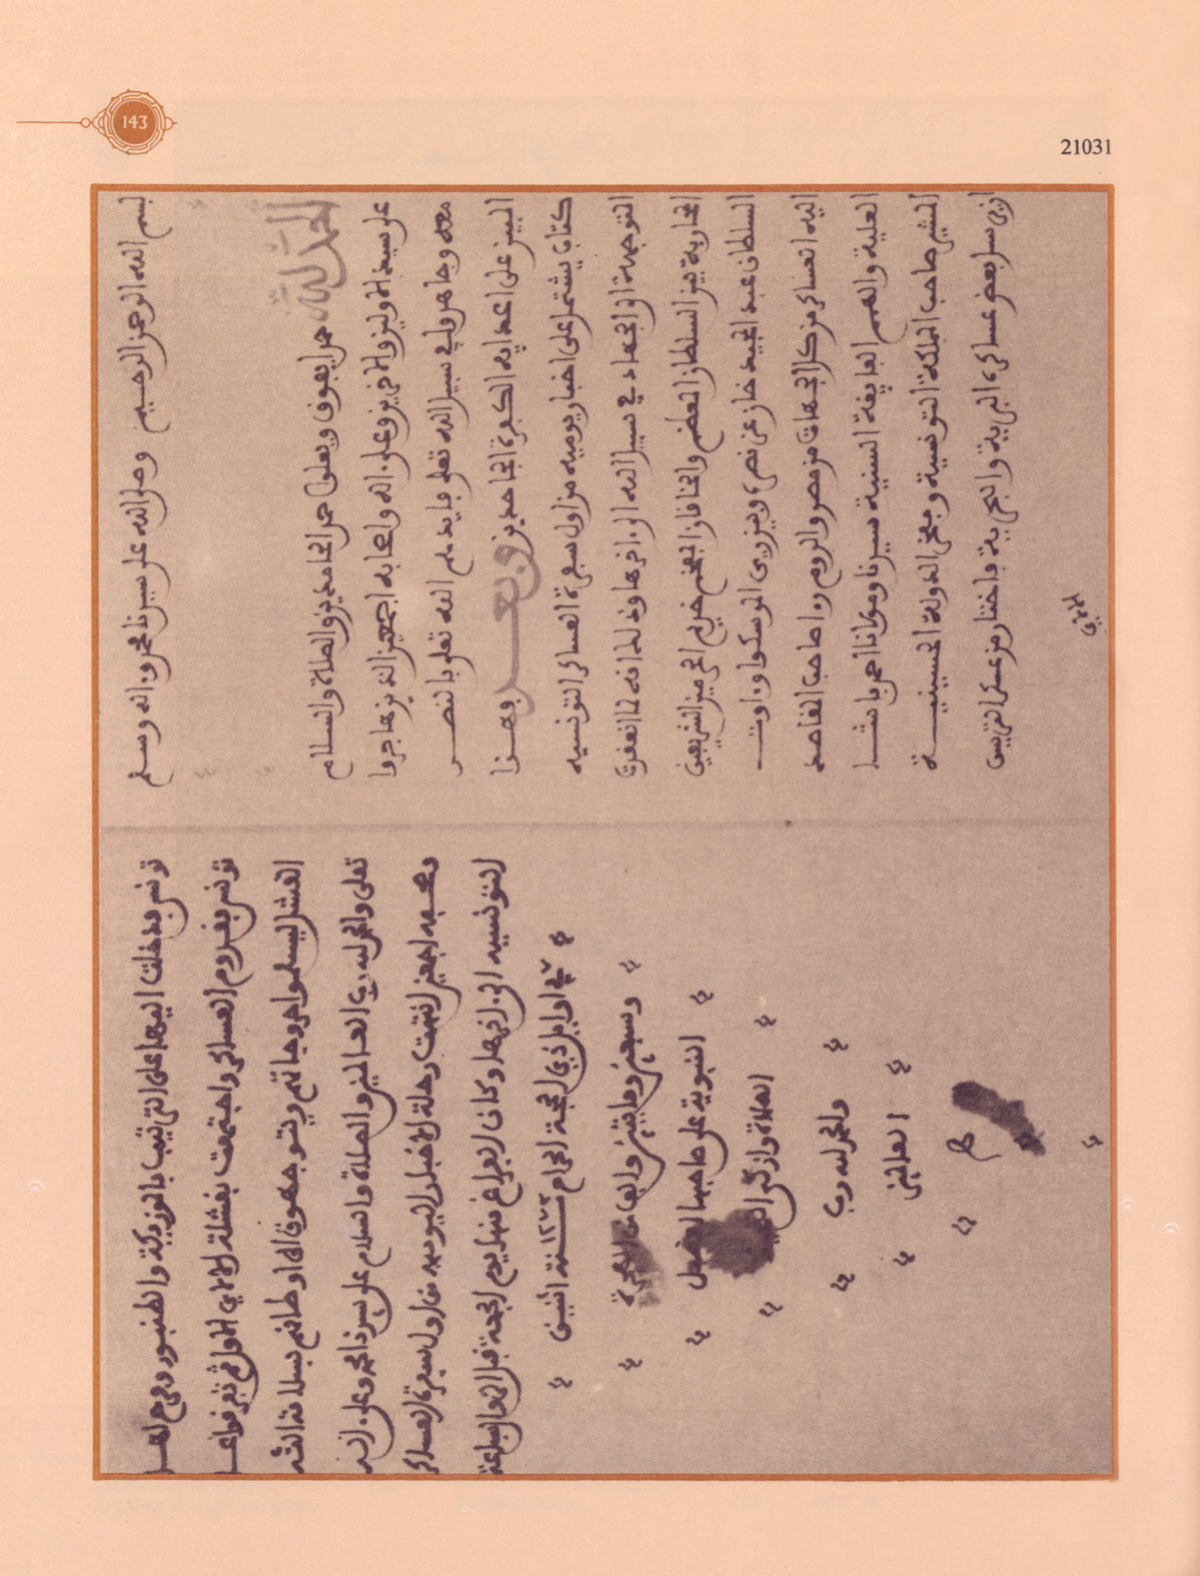 143
21031
بسم الله الرحمن الرحيم وصلى الله على سيدنا محمد وءاله وسلم
الحمد لله
حمدا يفوق ويعلو حمد الحامدين والصلاة والسلام
على سيد الاولين والاخرين وعلى ءاله واصحابه اجمعين الذين هاجروا
معه وجاهدوا في سبيل الله تعلى فايدهم الله تعلى بالنصر
المبين على اعدايه الكفرة الجاحدين وبعد فهذا
كتاب يشتمل على اخبار يوميه من اول سفرة العساكر التونسيه
المتوجهة الى الجهاد في سبيل الله الى ءاخرها وذلك انه لما انعقدت
المحاربة بين السلطان المعظم والخاقان المفخم خديم الحرمين الشريفين
السلطان عبد المجيد خان عز نصره وبين ري الموسكو اوتوت
اليه العساكر من كل الجهات من مصر والروم صاحب المقاصد
العلية والهمم الفايقة السنية سيدنا ومولانا احمد باشا
المشير صاحب المملكة التونسية ومفخر الدولة الحسينيـة
بعض عساكره البرية والبحرية فاختار من عسكر التريس
تونس فدخلت اليها على الترتيب بالموزيكة والطنبور وفرح لها
تونس بقدوم العساكر واجتمعت بقشلة الالاي الاول ثم تفرقوا على
القشل ليسلموا وحوايجهم ويتوجهون الى اوطانهم بسلامة الله
تعلى والحمد لله رب العالمين والصلاة والسلام على سيدنا محمد وعلى ءاله
وصحبه اجمعين انتهت رحلة الاخبار اليوميه من اول سفرة العساكر
التونسيه الى ءاخرها وكان الفراغ منها يوم الجمعة قبل
في اوايل ذي الحجة الحرام سنة ١٢٧٢ اثنين
وسبعين ومايتين والف من الهجرة
النبوية على صاحبها افضل
الصلاة وازكى
والحمد لله رب
العالمين